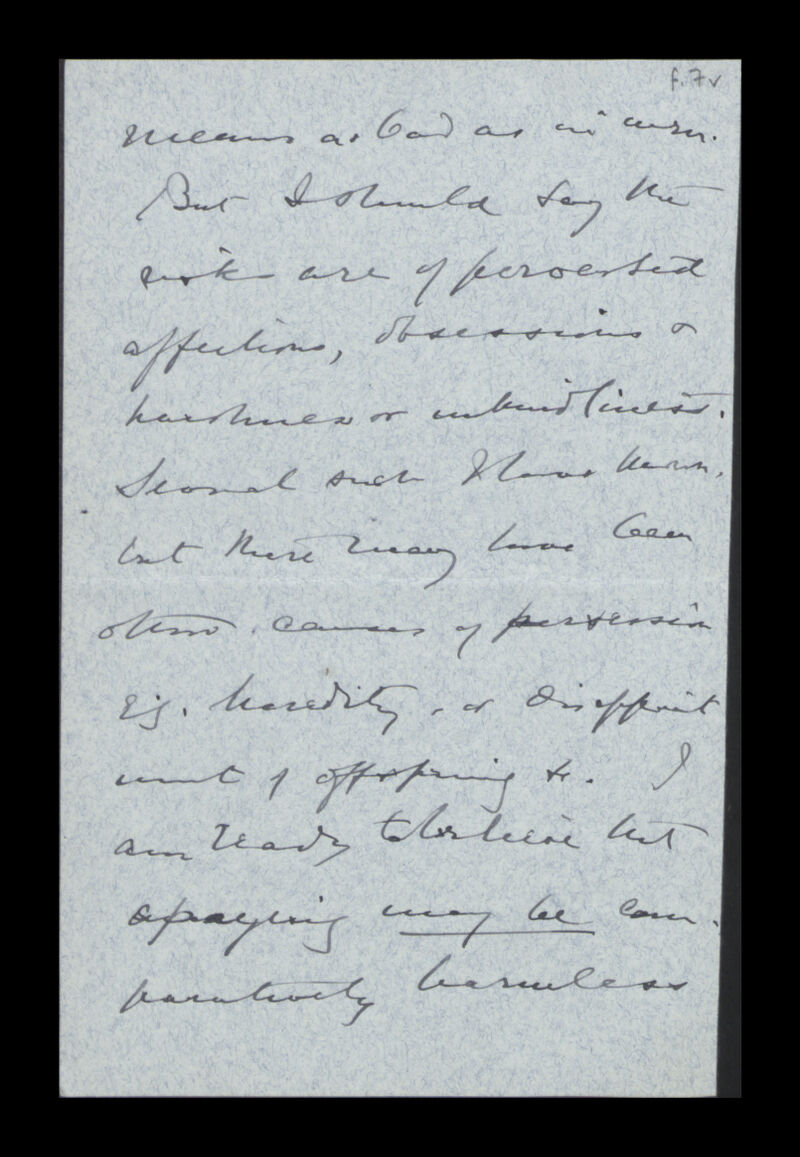 f. 7v
means as bad as in men.
But I should say the
risks are of perverted
affections, obsessions &
harshness or unkindliness.
Several such I have known,
but there may have been
other causes of perversion
e.g. heredity, or disappoint
ment of offspring &c. I
am ready to believe that
spaying may be com-
paratively harmless